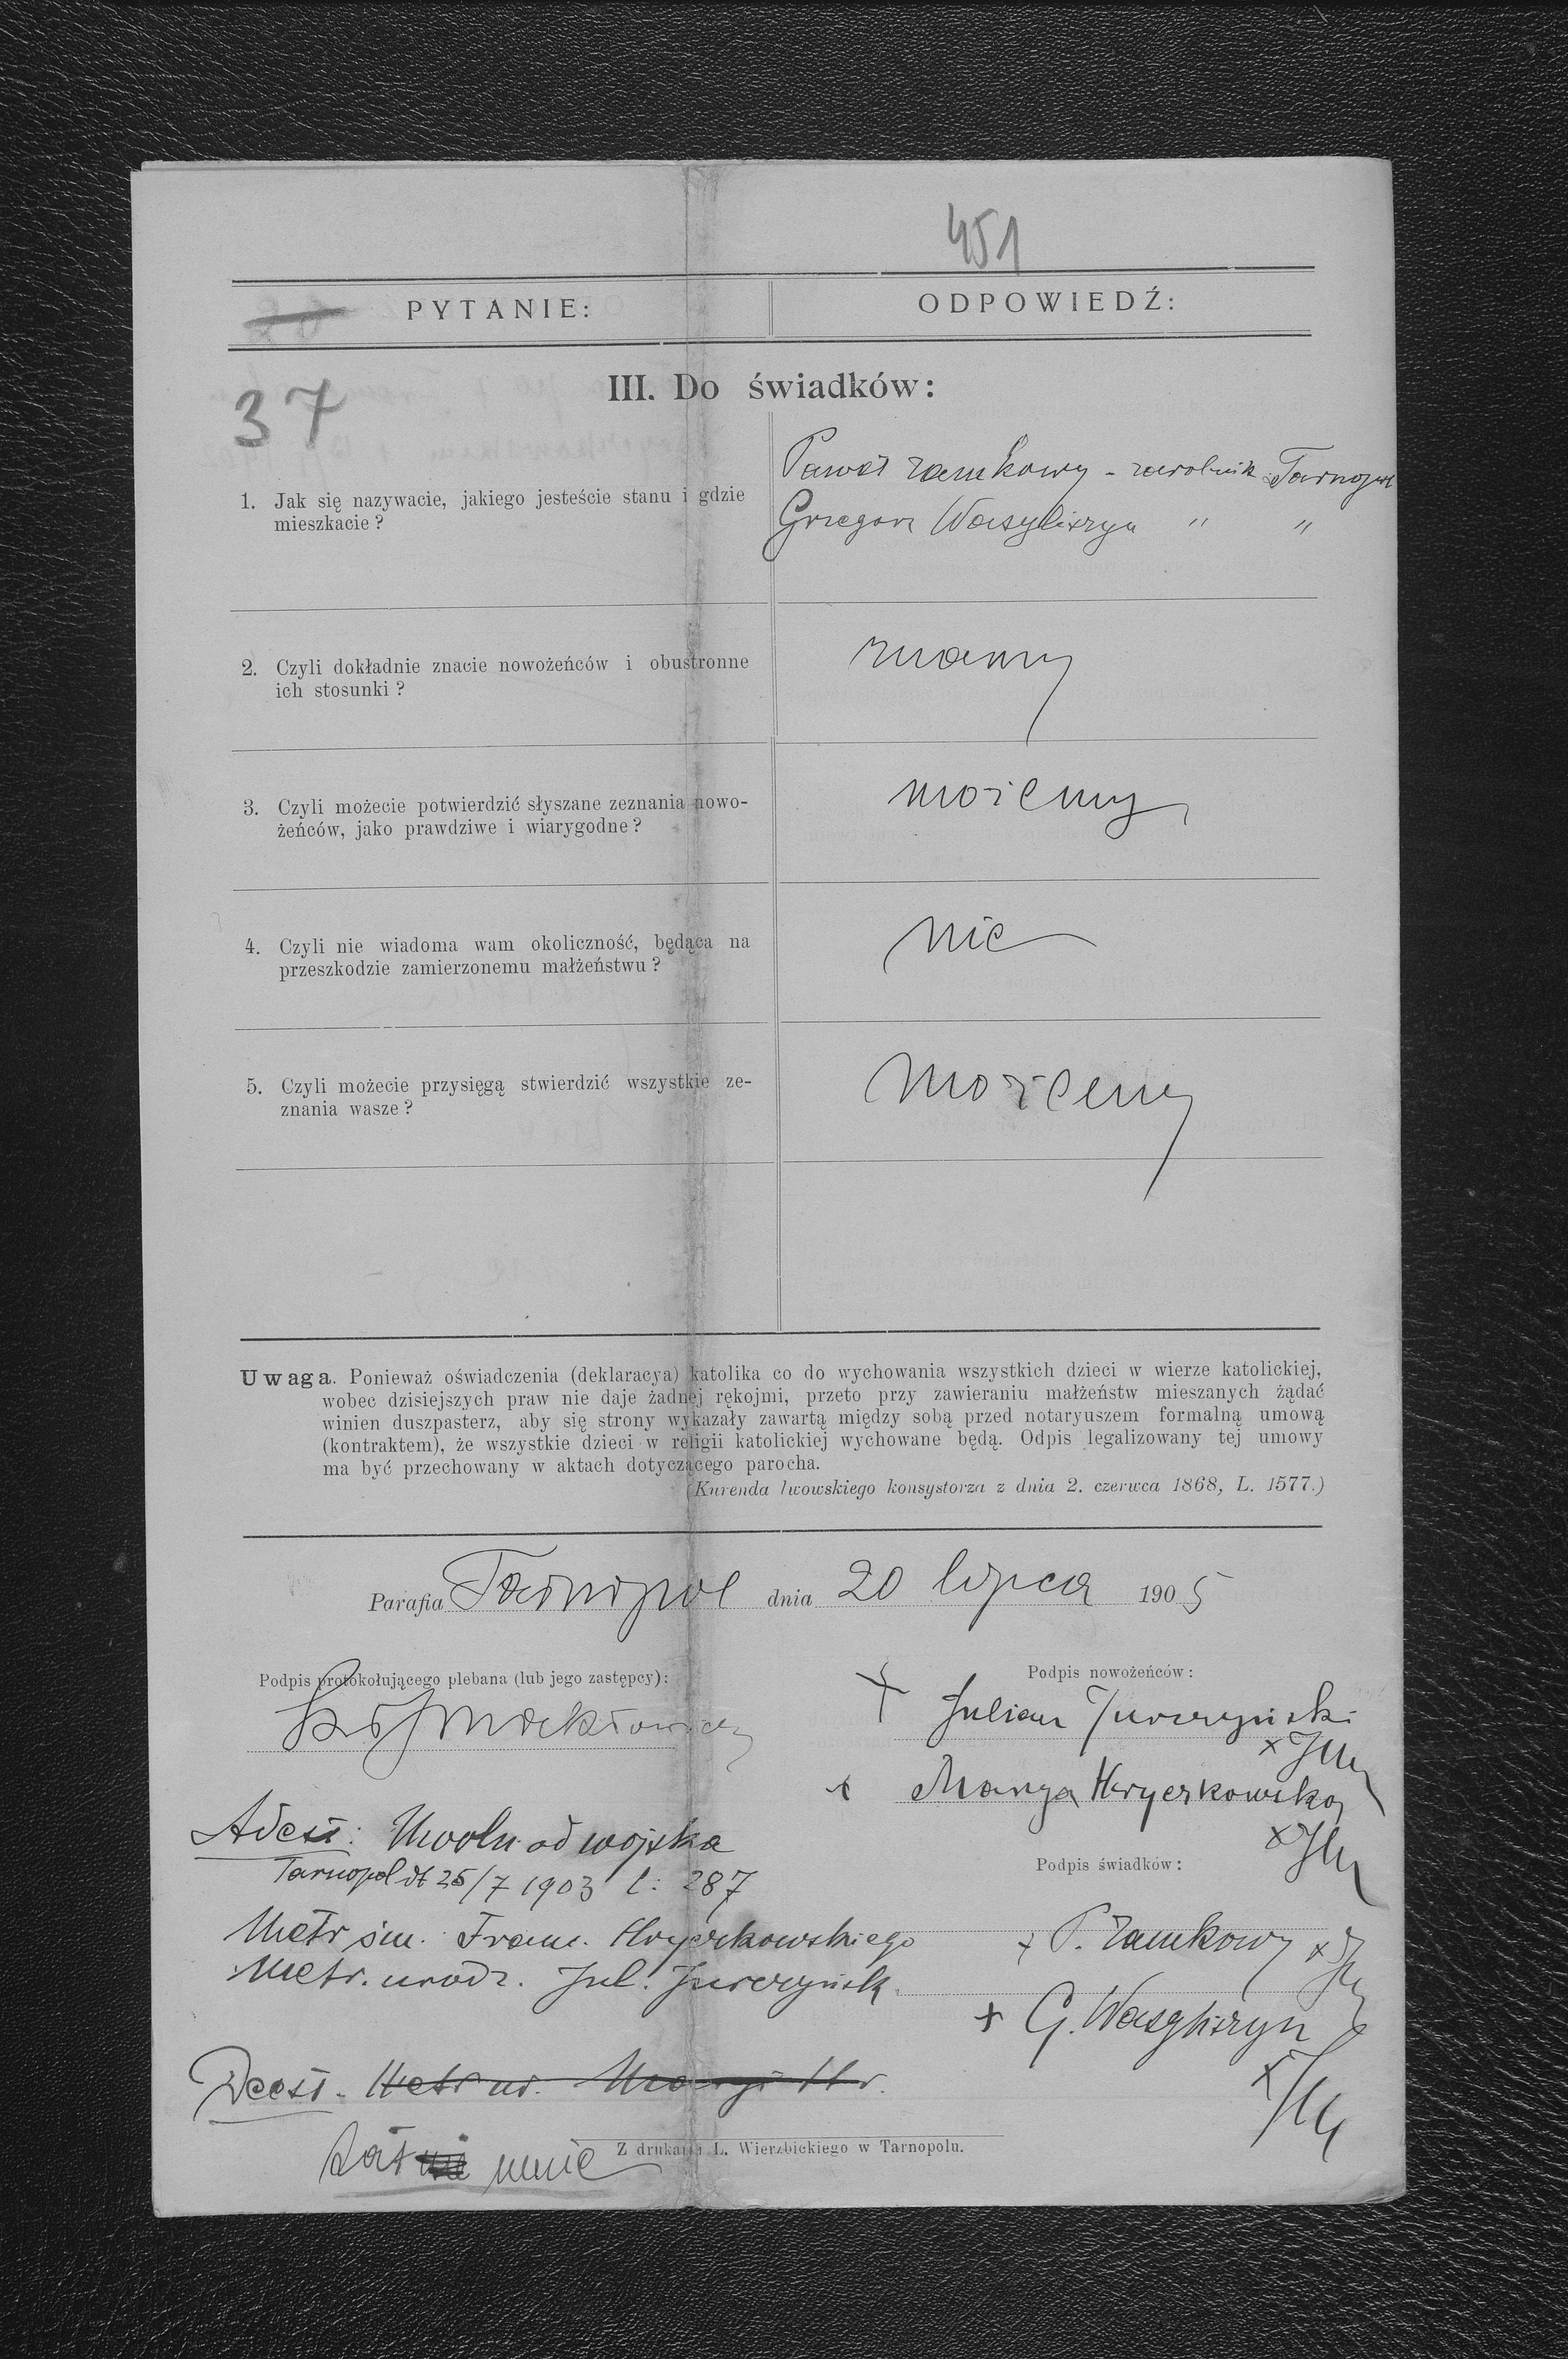 451
PYTANIE:
ODPOWIEDŹ:
37
III. Do świadków:
1. Jak się nazywacie, jakiego jesteście stanu i gdzie
mieszkacie?
Paweł Zamkowy - zarobnik Tarnopol
Grzegorz Wasyliszyn " "
2. Czyli dokładnie znacie nowożeńców i obustronne
ich stosunki?
znamy
3. Czyli możecie potwierdzić słyszane zeznania nowo-
żeńców, jako prawdziwe i wiarygodne?
możemy
4. Czyli nie wiadoma wam okoliczność, będąca na
przeszkodzie zamierzonemu małżeństwu?
nie
5. Czyli możecie przysięgą stwierdzić wszystkie ze-
znania wasze?
możemy
Uwaga. Ponieważ oświadczenia (deklaracya) katolika co do wychowania wszystkich dzieci w wierze katolickiej,
wobec dzisiejszych praw nie daje żadnej rękojmi, przeto przy zawieraniu małżeństw mieszanych żądać
winien duszpasterz, aby się strony wykazały zawartą między sobą przed notaryuszem formalną umową
(kontraktem), że wszystkie dzieci w religii katolickiej wychowane będą. Odpis legalizowany tej umowy
ma być przechowany w aktach dotyczącego parocha.
(Kurenda lwowskiego konsystorza z dnia 2. czerwca 1868, L. 1577.)
Parafia Tarnopol dnia 20 lipca 1905
Podpis protokołującego plebana (lub jego zastępcy):
Podpis nowożeńców:
+ Julian Jurczyński
x Marya Hryczkowska
Adest: Uwoln. od wojska
Tarnopol dt 25/7 1903 l: 287
Podpis świadków:
Metr śm. Franc. Hryczkowskiego
Metr. urodz. Jul. Jurczyńsk.
+ P. Zamkowy
+ G. Wasyliszyn
Deest. Metr ur. Maryi Hr.
Z drukarni L. Wierzbickiego w Tarnopolu.